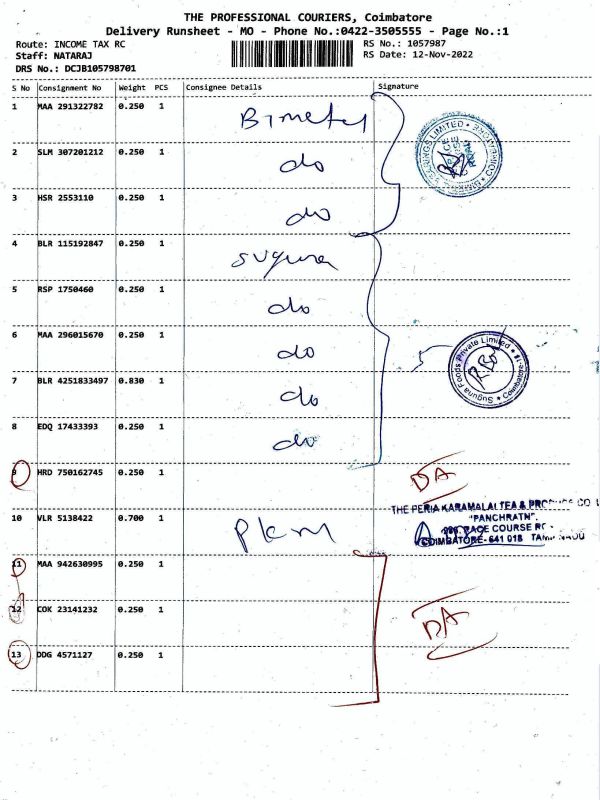 THE PROFESSIONAL COURIERS, Coimbatore
Delivery Runsheet - MO - Phone No.:0422-3505555 - Page No.:1
Route: INCOME TAX RC
RS No.: 1057987
Staff: NATARAJ
RS Date: 12-Nov-2022
DRS No.: DCJB105798701
S No Consignment No Weight PCS Consignee Details Signature
1 MAA 291322782 0.250 1 Bimetal
2 SLM 307201212 0.250 1 do
3 HSR 2553110 0.250 1 do
4 BLR 115192847 0.250 1 Suguna
5 RSP 1750460 0.250 1 do
6 MAA 296015670 0.250 1 do
Suguna Foods Private Limited • Coimbatore
7 BLR 4251833497 0.830 1 do
8 EDQ 17433393 0.250 1 do
9 HRD 750162745 0.250 1 DA
THE PERIA KARAMALAI TEA & PRODUCE CO
10 VLR 5138422 0.700 1 PKM "PANCHRATN"
RACE COURSE
COIMBATORE - 641 018 TAMIL NADU
11 MAA 942630995 0.250 1
12 COK 23141232 0.250 1 DA
13 DDG 4571127 0.250 1